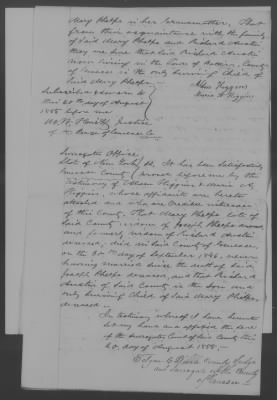 Mary Phelps is her handwriter, That
from their acquaintance with the family
of said Mary Phelps and Richard Austin
they are sure that said Richard Austin
now living in the Town of Batavia, County
of Genesee is the only surviving Child of
said Mary Phelps
Subscribed & sworn to
this 20th day of August
1855 before me
Justice
of Peace of Genesee Co
Adam Higgins
Maria A Higgins
Surrogate Office
State of New York ss. It has been satisfactorily
Genesee County proven before me by the
testimony of Adam Higgins & Maria A.
Higgins, whose affidavits are hereto
attached and who are credible witnesses
of this County. That Mary Phelps late of
said County widow of Joseph Phelps
and formerly widow of Richard Austin
deceased, died in said County of Genesee,
on the 30th day of September 1846, never
having married since the death of said
Joseph Phelps deceased, and that Richard
Austin of said County is the son and
only surviving Child of said Mary Phelps
deceased
In testimony whereof I have hereunto
set my hand and affixed the seal
of the Surrogate Court of said County this
20 day of August 1855.
County Judge
and Surrogate of the County
of Genesee